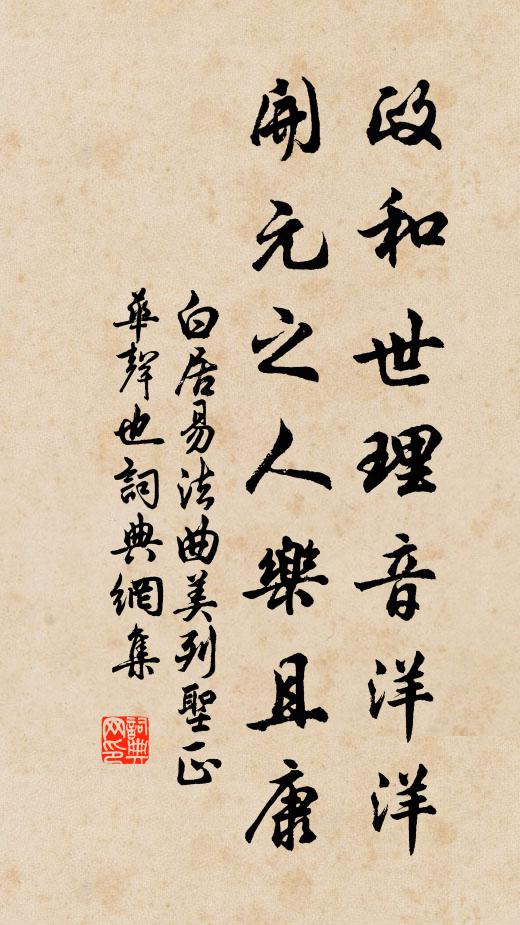 政和世理音洋洋
開元之人樂且康
白居易法曲美列聖正
華聲也詞典網集
詞典網印